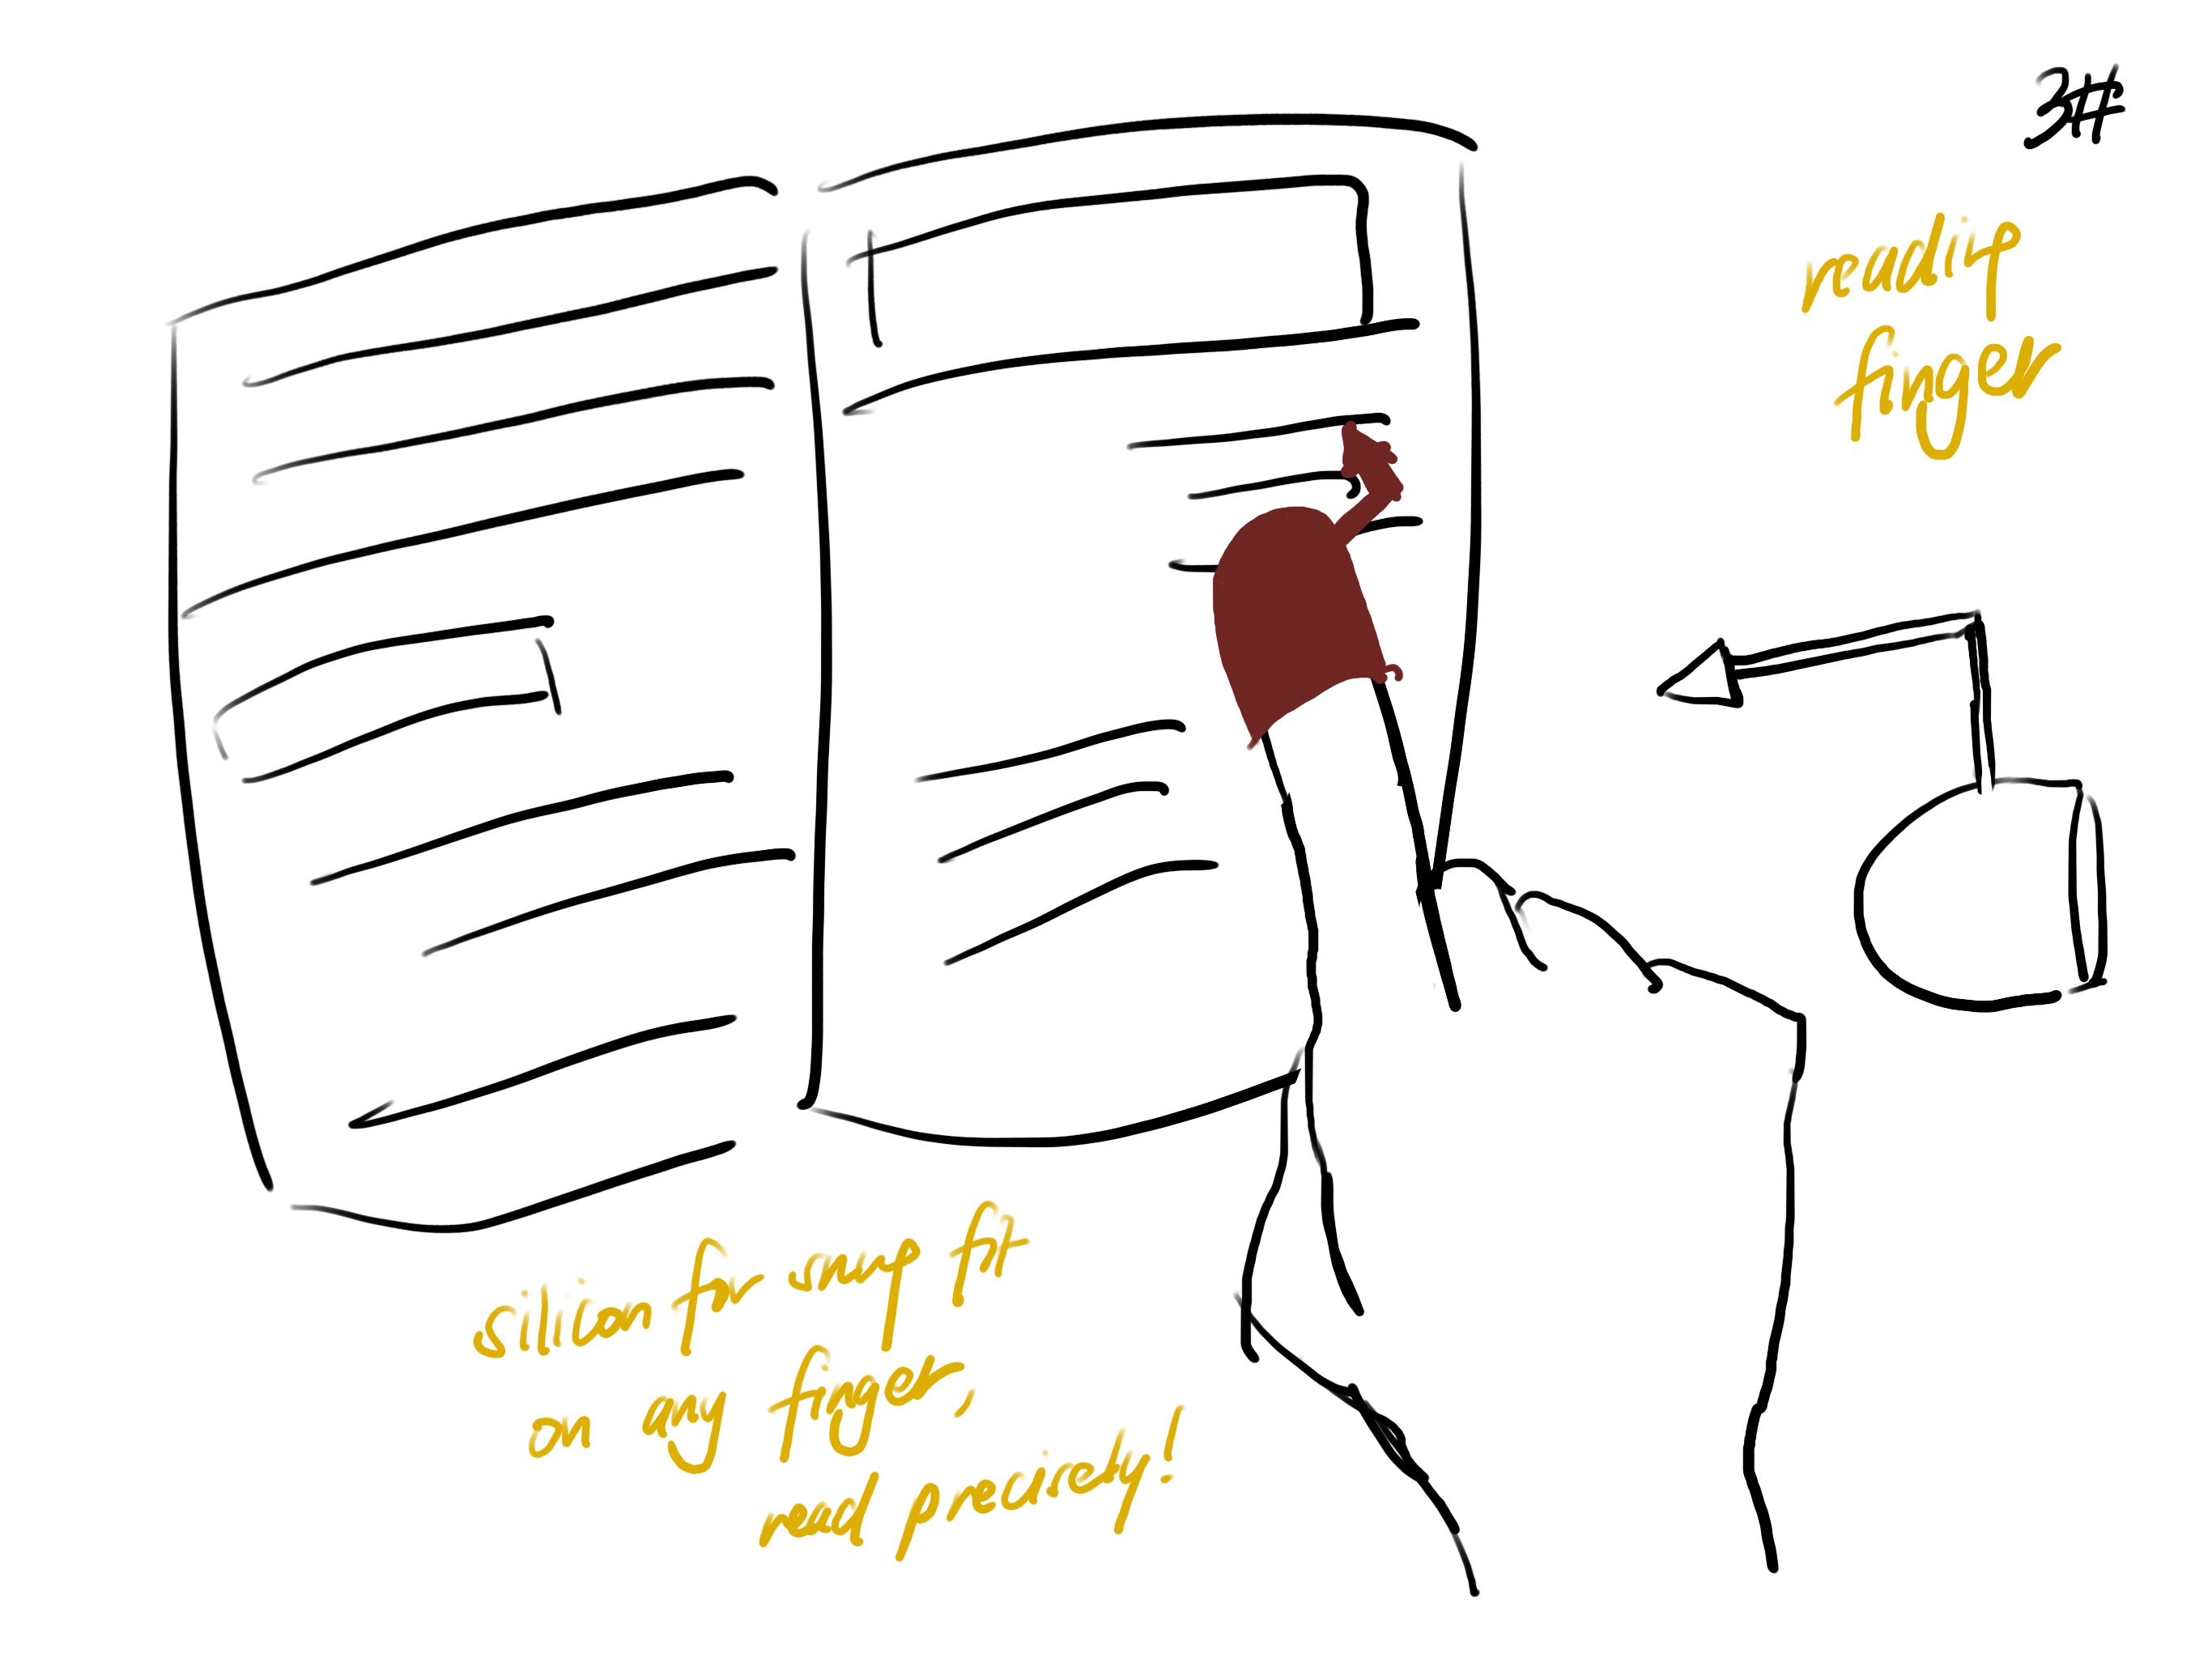 3#
reading
finger
silicon for snug fit
on any finger,
read precisely!